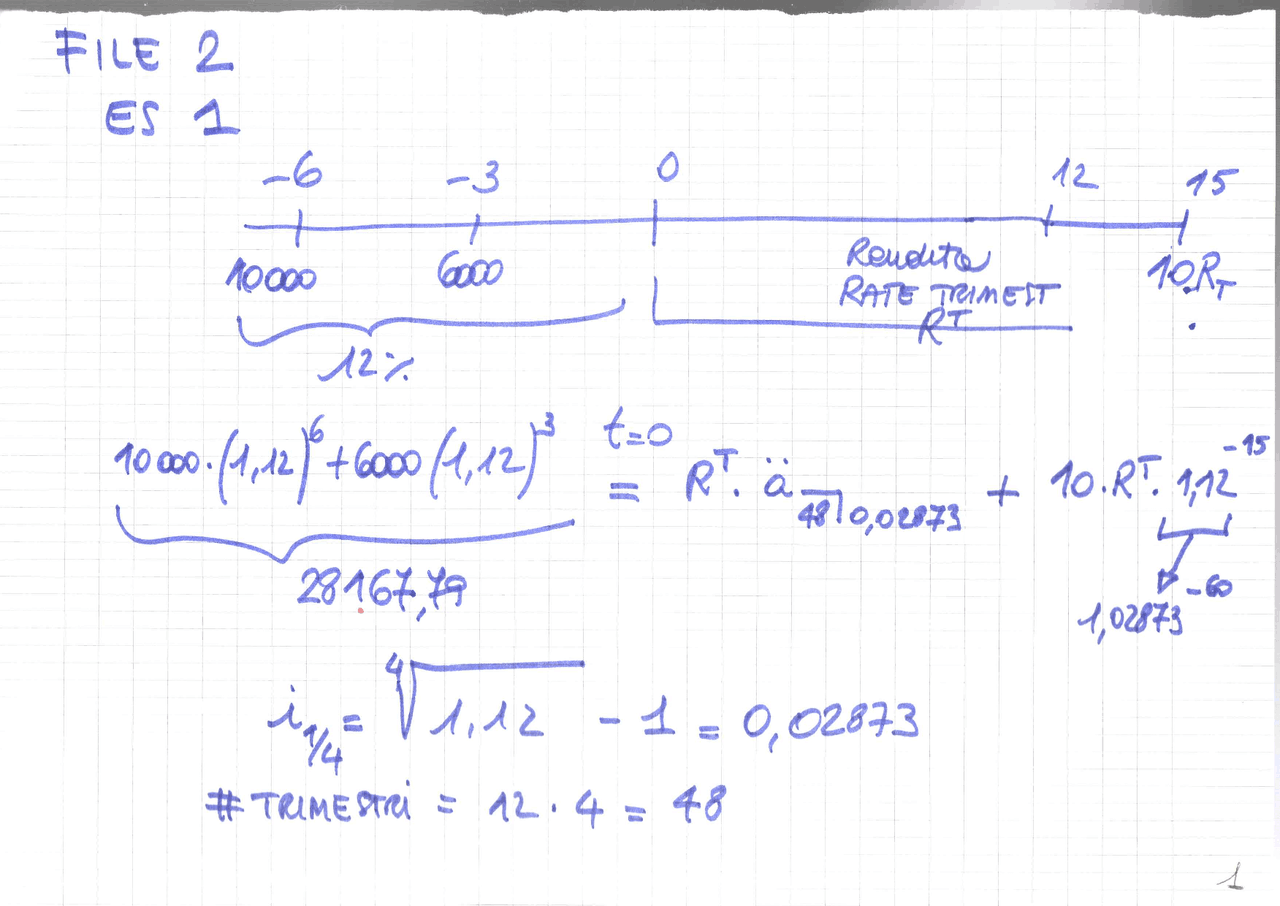 FILE 2
ES 1
-6 -3 0 12 15
10000 6000 10.R_T
Rendita
RATE TRIMEST
R^T
12%
t=0
10000·(1,12)^6+6000(1,12)^3 = R^T· ä_48⌉0,02873 + 10·R^T· 1,12^-15
28167,79
1,02873^-60
i_1/4 = ∜1,12 - 1 = 0,02873
# TRIMESTRI = 12 · 4 = 48
1